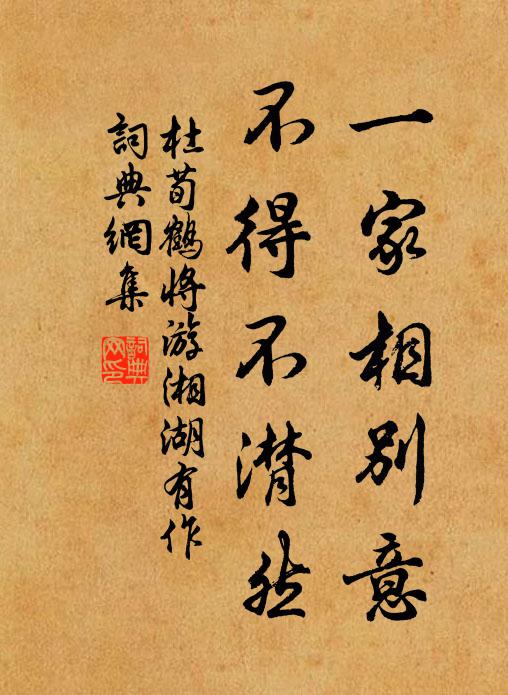 一家相別意
不得不潸然
杜荀鶴將游湘湖有作
詞典網集
詞典網印